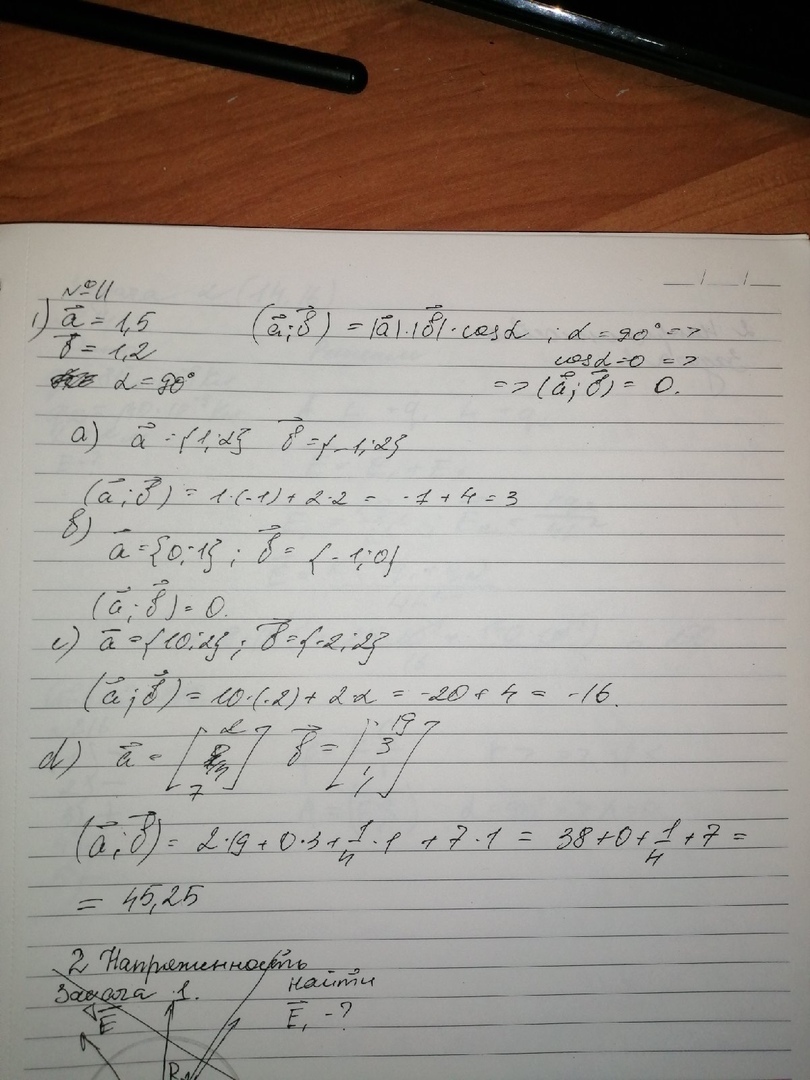 №11
1) a⃗ = 1,5 (a⃗; b⃗) = |a⃗|·|b⃗|·cosα ; α = 90° =>
b⃗ = 1,2 cosα=0 =>
α = 90° => (a⃗; b⃗) = 0.
a) a⃗ = {1;2} b⃗ = {-1;2}
(a⃗; b⃗) = 1·(-1) + 2·2 = -1 + 4 = 3
b)
a⃗ = {0;-1} ; b⃗ = {-1;0}
(a⃗; b⃗) = 0.
c) a⃗ = {10;2} ; b⃗ = {-2;2}
(a⃗; b⃗) = 10·(-2) + 2·2 = -20 + 4 = -16.
d) a⃗ = [2 7] b⃗ = [19 3 1 1]
(a⃗; b⃗) = 2·19 + 0·3 + 1/4·1 + 7·1 = 38 + 0 + 1/4 + 7 =
= 45,25
2 Напряженность
Задача 1. найти
E⃗ E⃗, -?
R